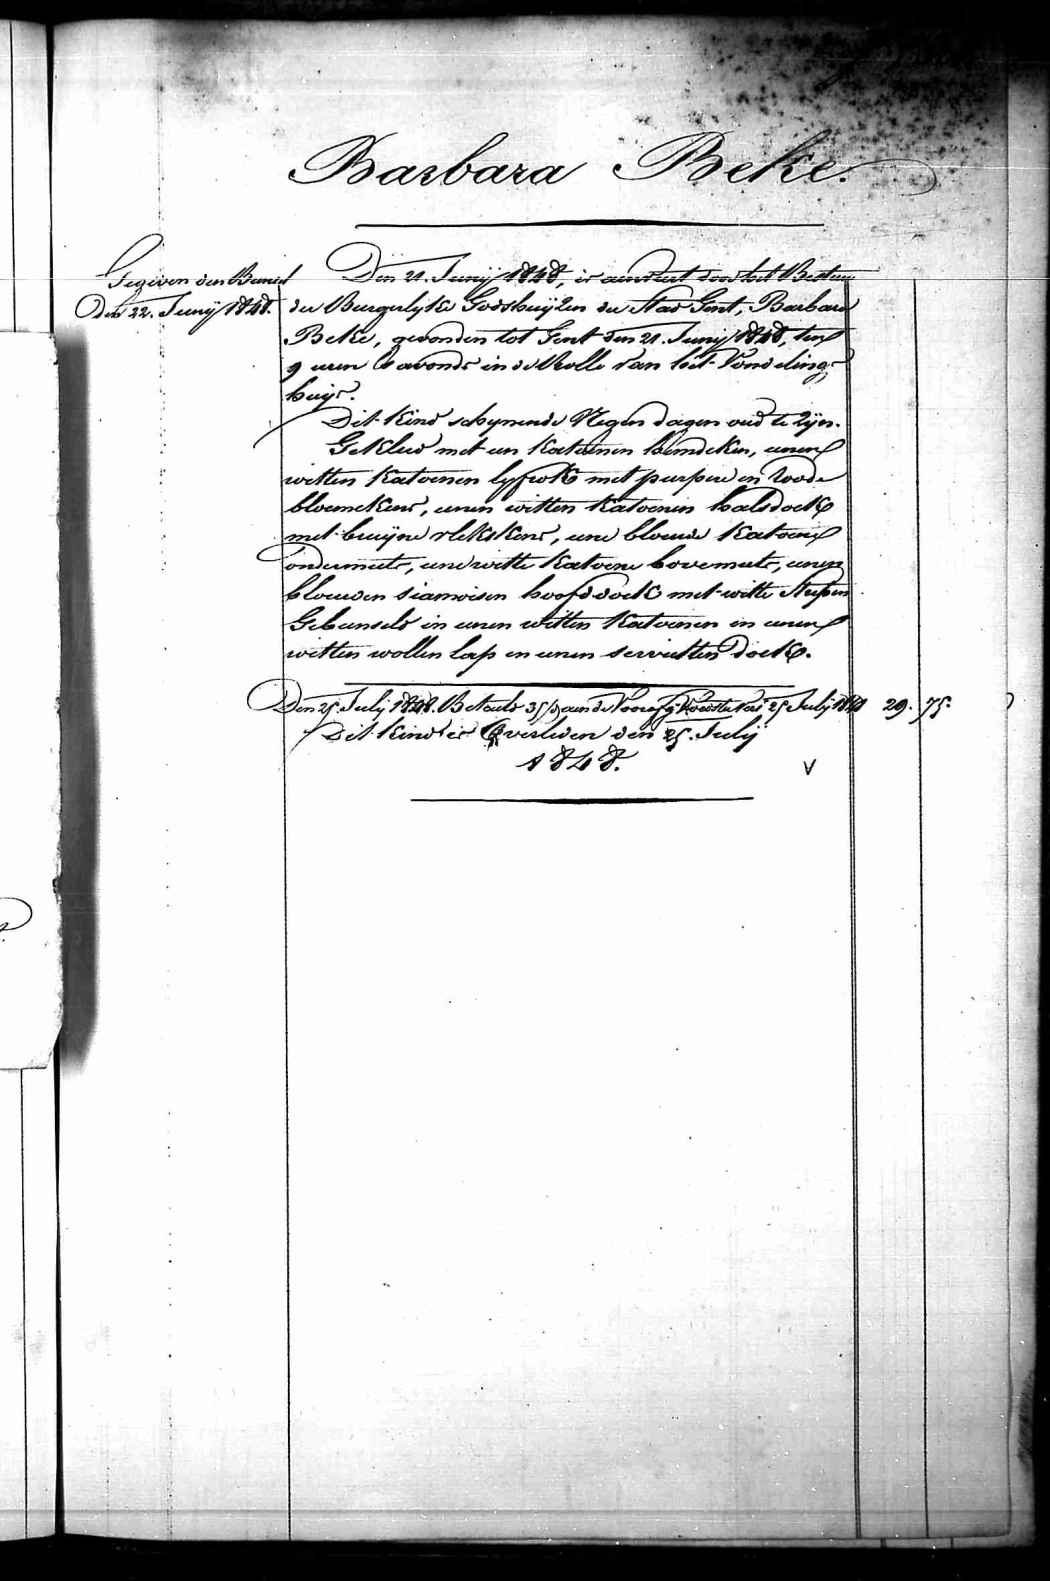 Barbara Beke.
Gegeven den Bureel
Den 22. Junij 1848.
Den 21. Junij 1848, is aenveert door het Bestuer
der Burgerlyke Godshuijzen der Stad Gent, Barbara
Beke, gevonden tot Gent den 21. Junij 1848, ten
9 uren 's avonds in de Rolle van het Vondelings
huijs.
Dit Kind schynende Negen dagen oud te zijn.
Gekleed met een Katoenen hemdeken, eenen
witten Katoenen lyfrok met purpere en roode
bloemekens, eenen witten Katoenen halsdoek
met bruijne vlekskens, eene blauwe Katoene
ondermuts, eene witte Katoene bovemuts, eenen
blauwen siamoisen hoofddoek met witte strepen
Gebunseld in eenen witten Katoenen en eenen
witten wollen lap en eenen servietten doek.
Den 25. July 1848. Betaeld 35 aen de Voorsz. Voedster tot 25 July 1848 29. 75.
Dit Kind is Overleden den 25. Julij
1848. V